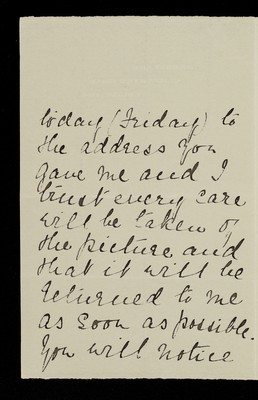 today (Friday) to
the address you
gave me and I
trust every care
will be taken of
the picture and
that it will be
returned to me
as soon as possible.
You will notice